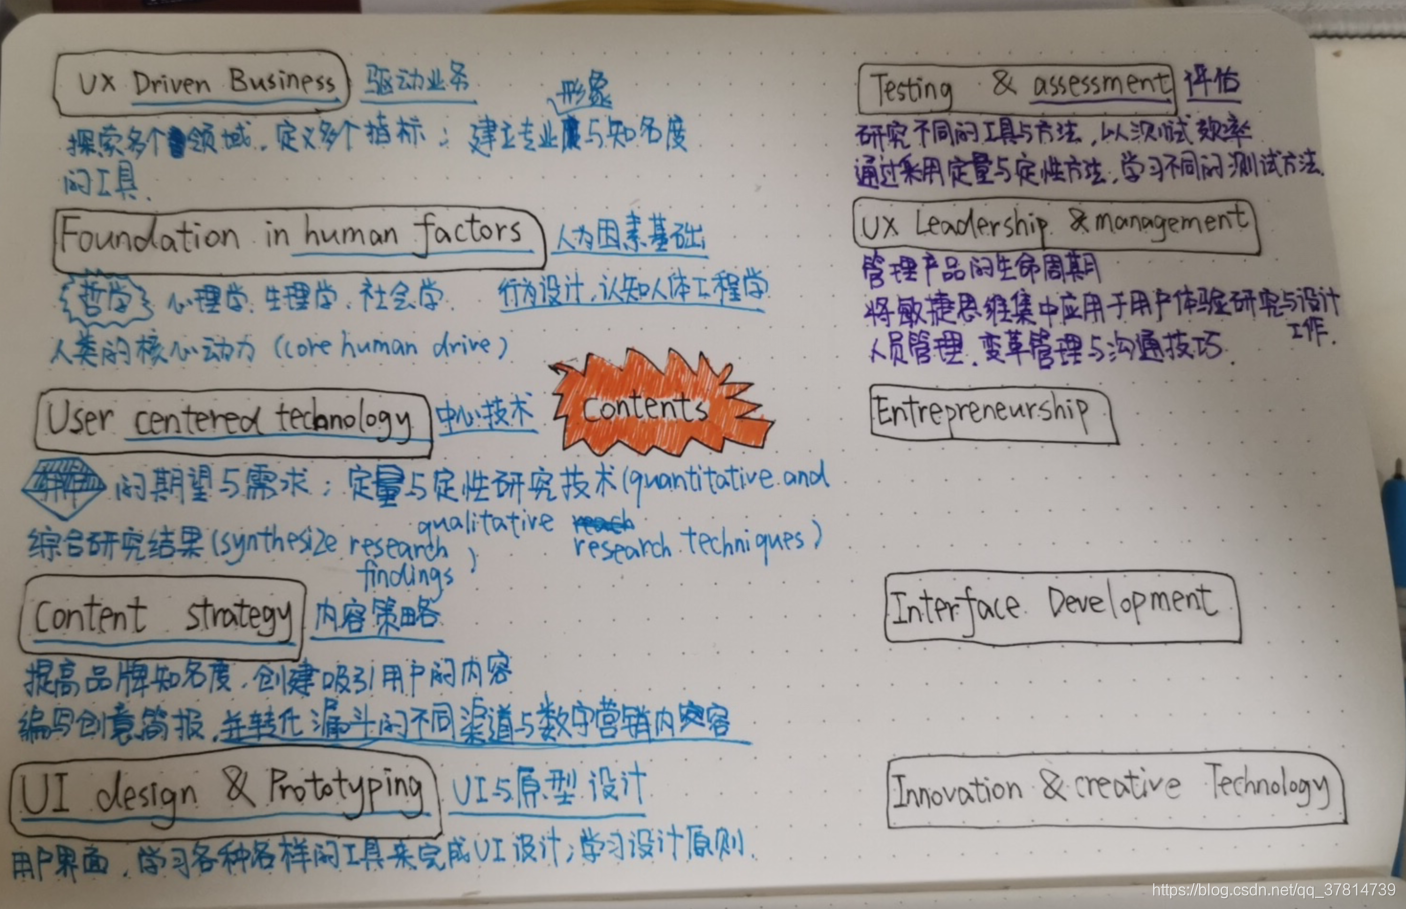 UX Driven Business 驱动业务
形象
探索多个领域,定义多个指标;建立专业与知名度
的工具.
Foundation in human factors 人为因素基础
哲学 心理学.生理学.社会学. 行为设计,认知人体工程学
人类的核心动力(core human drive)
User centered technology 中心技术
contents
的期望与需求;定量与定性研究技术(quantitative and
qualitative research techniques)
综合研究结果(synthesize research
findings)
Content strategy 内容策略
提高品牌知名度,创建吸引用户的内容
编写创意简报,并转化漏斗的不同渠道与数字营销内容
UI design & Prototyping UI与原型设计
用户界面,学习各种各样的工具来完成UI设计;学习设计原则.
Testing & assessment 评估
研究不同的工具与方法,以测试效率
通过采用定量与定性方法,学习不同的测试方法.
UX Leadership & management
管理产品的生命周期
将敏捷思维集中应用于用户体验研究与设计
工作.
人员管理.变革管理与沟通技巧.
Entrepreneurship
Interface Development
Innovation & creative Technology
https://blog.csdn.net/qq_37814739